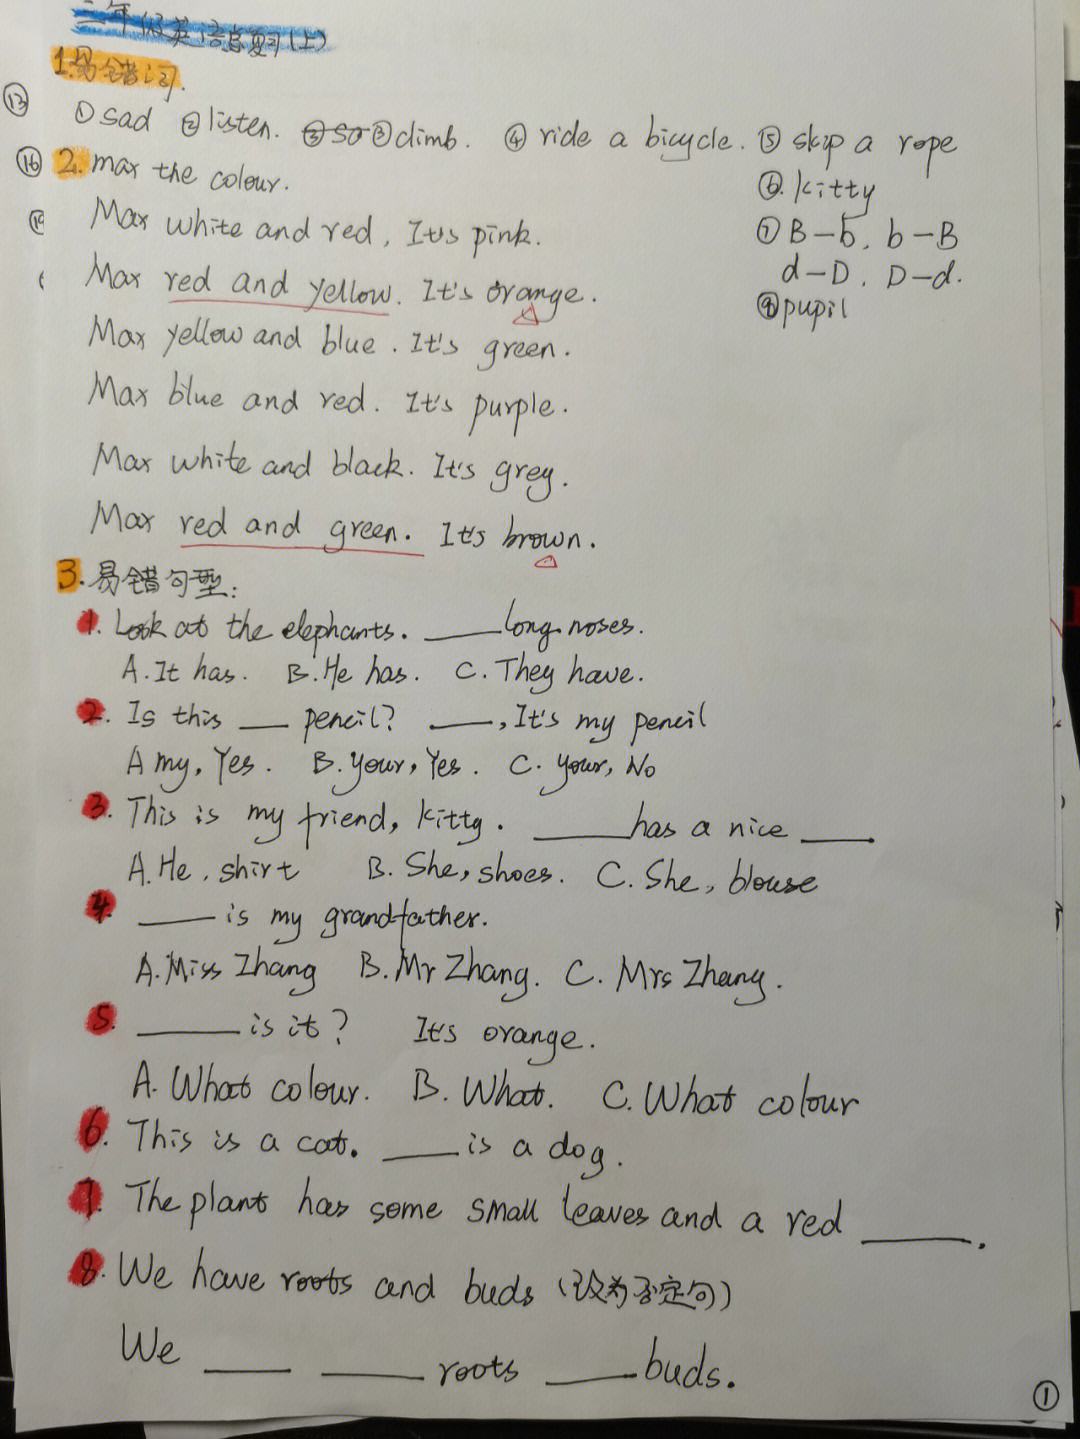 三年级英语总复习(上)
1.易错词.
⑬
①sad ②listen. ③so ③climb. ④ ride a bicycle. ⑤ skip a rope
⑯ 2. max the colour.
⑥. kitty
Max white and red, It's pink.
⑦ B-b, b-B
Max red and yellow. It's orange.
d-D, D-d.
⑨pupil
Max yellow and blue. It's green.
Max blue and red. It's purple.
Max white and black. It's grey.
Max red and green. It's brown.
3.易错句型:
1. Look at the elephants. ____long noses.
A.It has. B.He has. C.They have.
2. Is this ____ pencil? ____, It's my pencil
A my, Yes. B.your, Yes. C. your, No
3. This is my friend, kitty. ____has a nice ____
A.He, shirt B. She, shoes. C. She, blouse
4. ____ is my grandfather.
A.Miss Zhang B.Mr Zhang. C. Mrs Zhang.
5. ____ is it? It's orange.
A. What colour. B. What. C. What colour
6. This is a cat. ____ is a dog.
7. The plant has some small leaves and a red ____.
8. We have roots and buds (改为否定句)
We ____ ____ roots ____ buds.
①